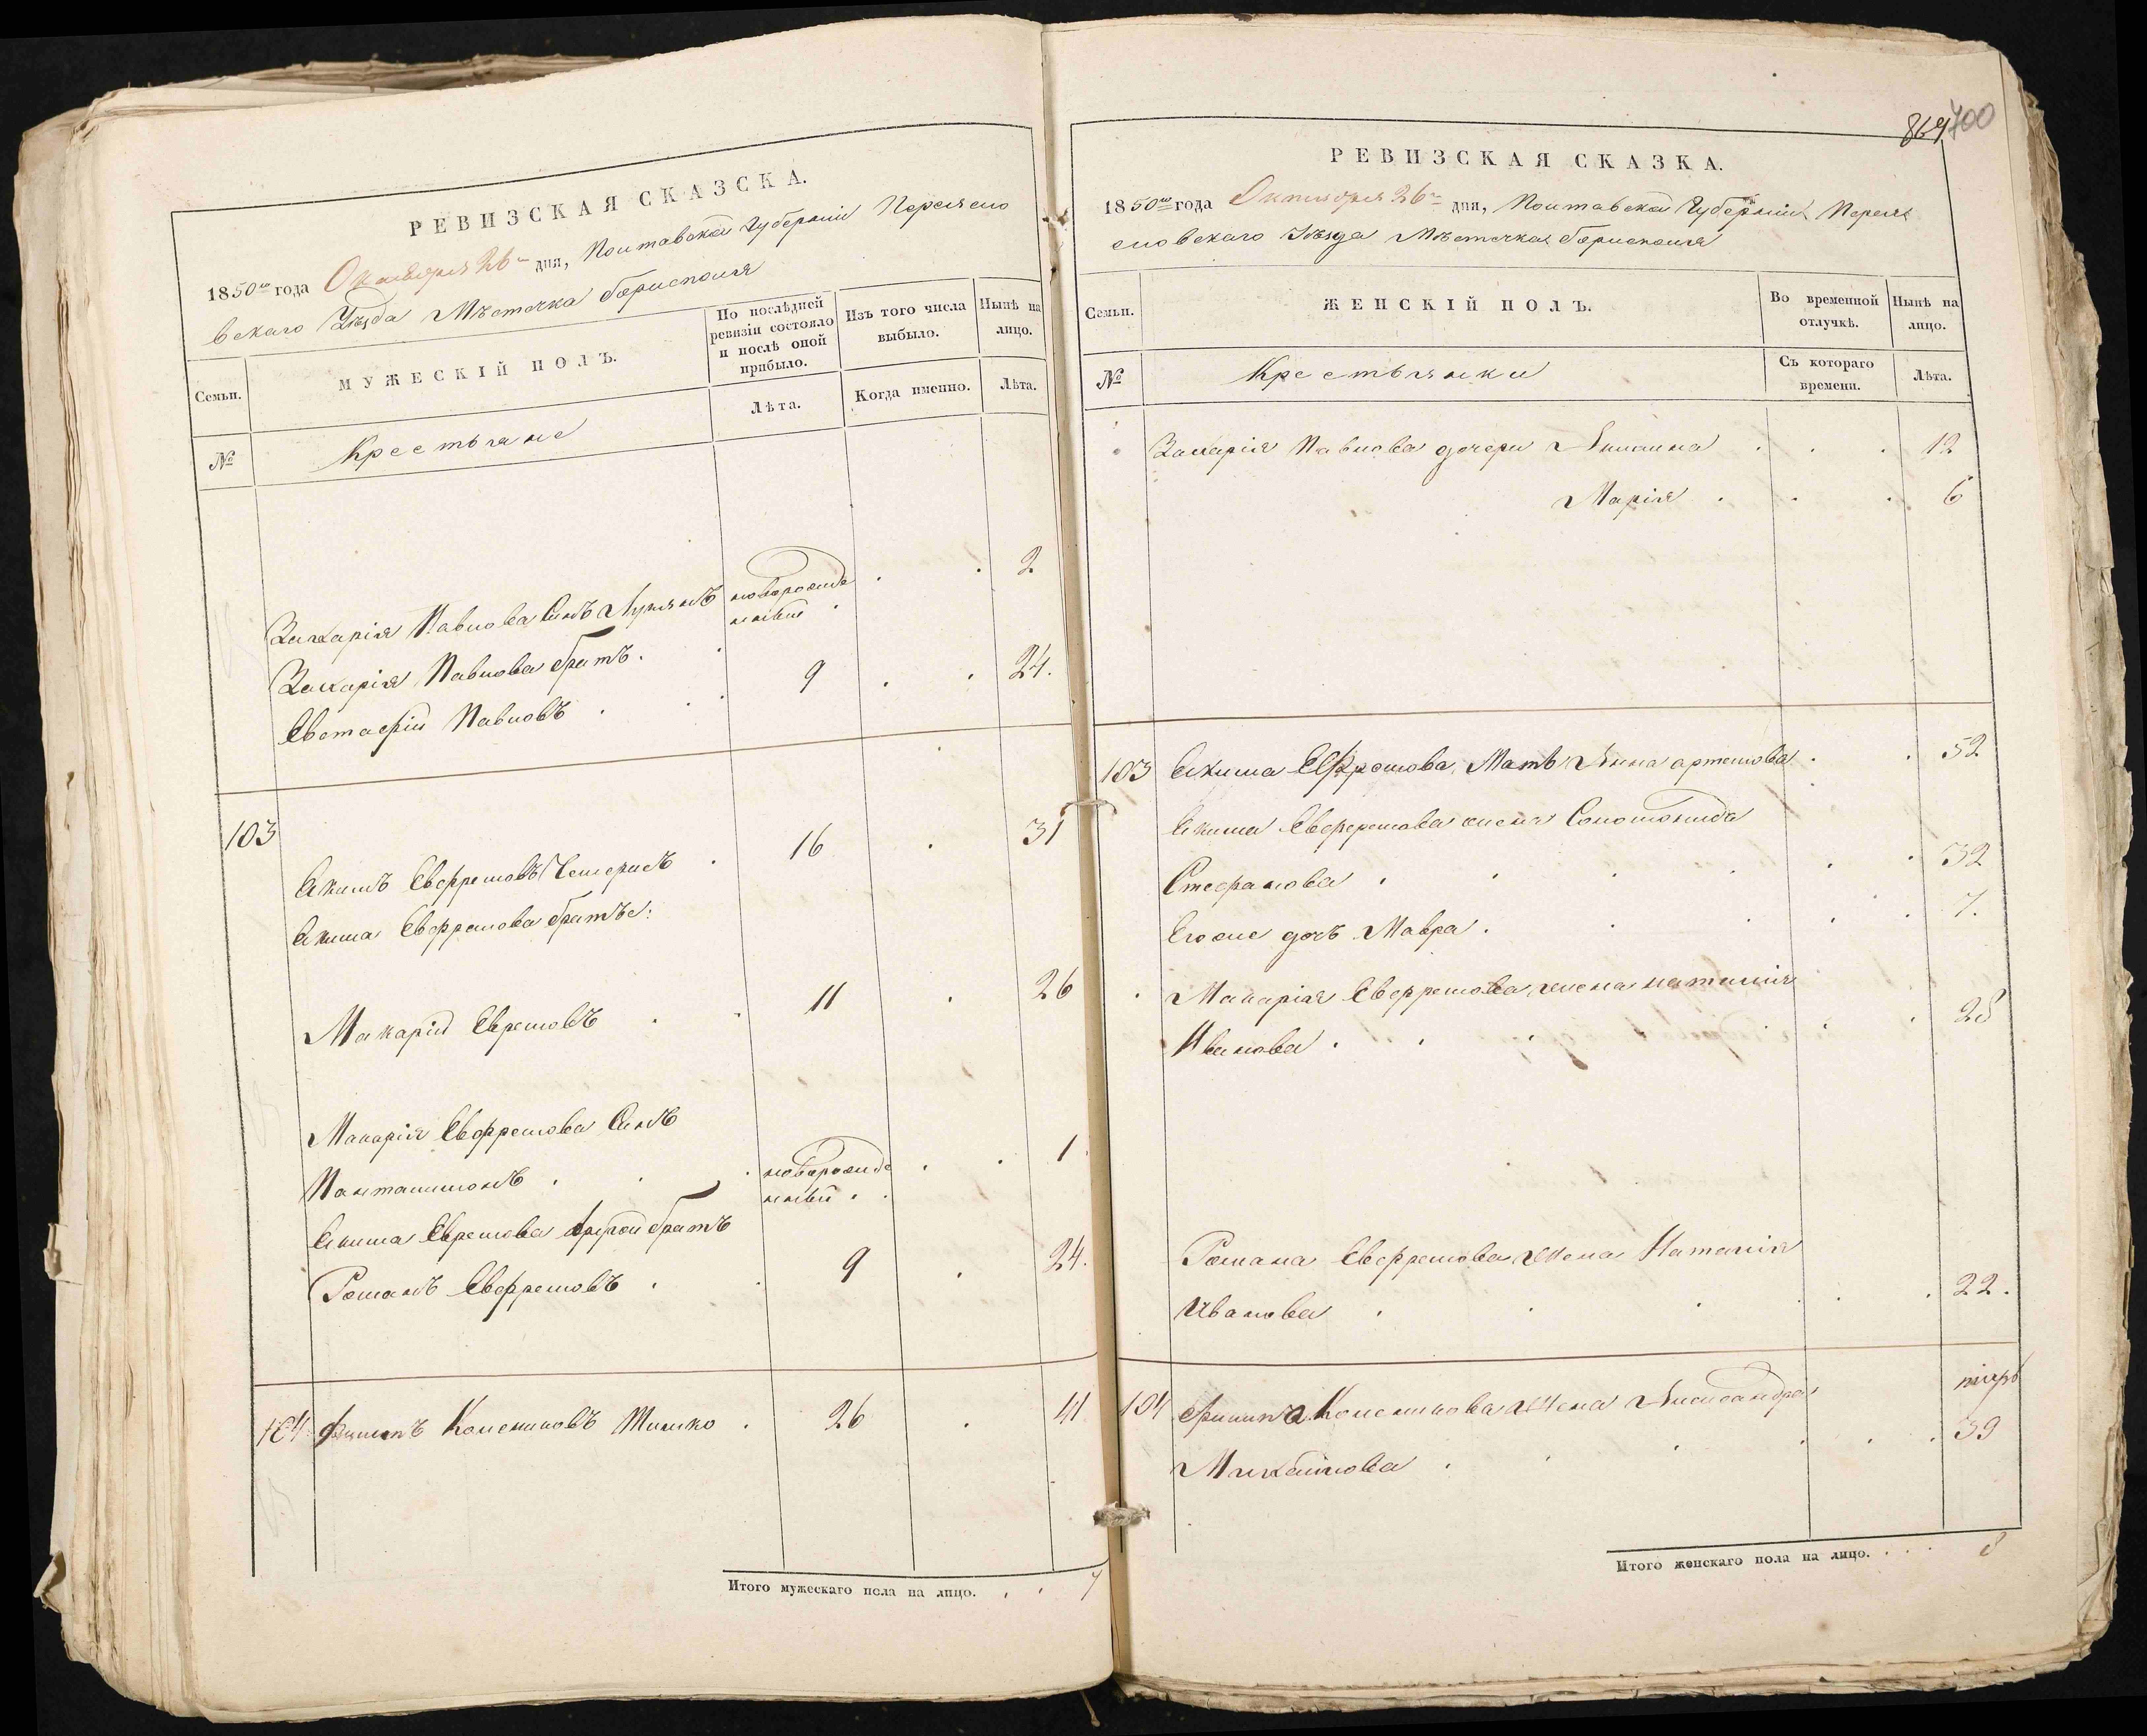 РЕВИЗСКАЯ СКАЗСКА.
1850го года Октября 26го дня, Полтавской Губерніи Переясло
вскаго Уѣзда Мѣстечка Борисполя
Семьи.
МУЖЕСКІЙ ПОЛЪ.
По послѣдней ревизіи состояло и послѣ оной прибыло.
Изъ того числа выбыло.
Нынѣ на лицо.
№
Крестьяне
Лѣта.
Когда именно.
Лѣта.
Захарія Павлова Синъ Лукянъ новорожде 2
нный
Захарія Павлова братъ
Евстафій Павловъ 9 24.
103
Акимъ Евфремовъ 16 31
Акима Евфремова братъе:
Макарій Ефремовъ 11 26
Макарія Евфремова Синъ
Панталимонъ новорожде 1
нный
Акима Ефремова другой братъ
Романъ Евфремовъ 9 24.
104 Филипъ Колениковъ Тимко 26 41
Итого мужескаго пола на лицо. 7
864 700
РЕВИЗСКАЯ СКАЗКА.
1850го года Октября 26го дня, Полтавской Губерніи Перея
словскаго Уѣзда Мѣстечка Борисполя
Семьи.
ЖЕНСКІЙ ПОЛЪ.
Во временной отлучкѣ.
Нынѣ на лицо.
№
Крестьянки
Съ котораго времени.
Лѣта.
Захарія Павлова дочери Акилина 12
Марія 6
103 Акима Ефремова Мать Анна артемова 52
Акима Евфремова жена Соломонида
Стефанова 32
Егоже дочъ Мавра 7.
Макарія Евфремова жена наталія
Иванова 28
Романа Евфремова Жена Наталія
Иванова 22.
104 Филипа Коленикова Жена Александра
Михайлова 39
Итого женскаго пола на лицо. 8